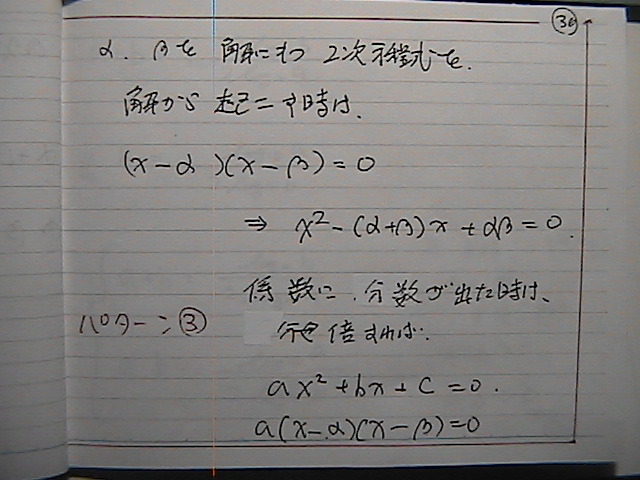 ㊴
α. βを 解にもつ 2次方程式を.
解から 起こす時は.
(x-α)(x-β)=0
⇒ x²-(α+β)x+αβ=0.
係数に、分数が出た時は、
パターン③ 倍すれば.
ax²+bx+c=0.
a(x-α)(x-β)=0